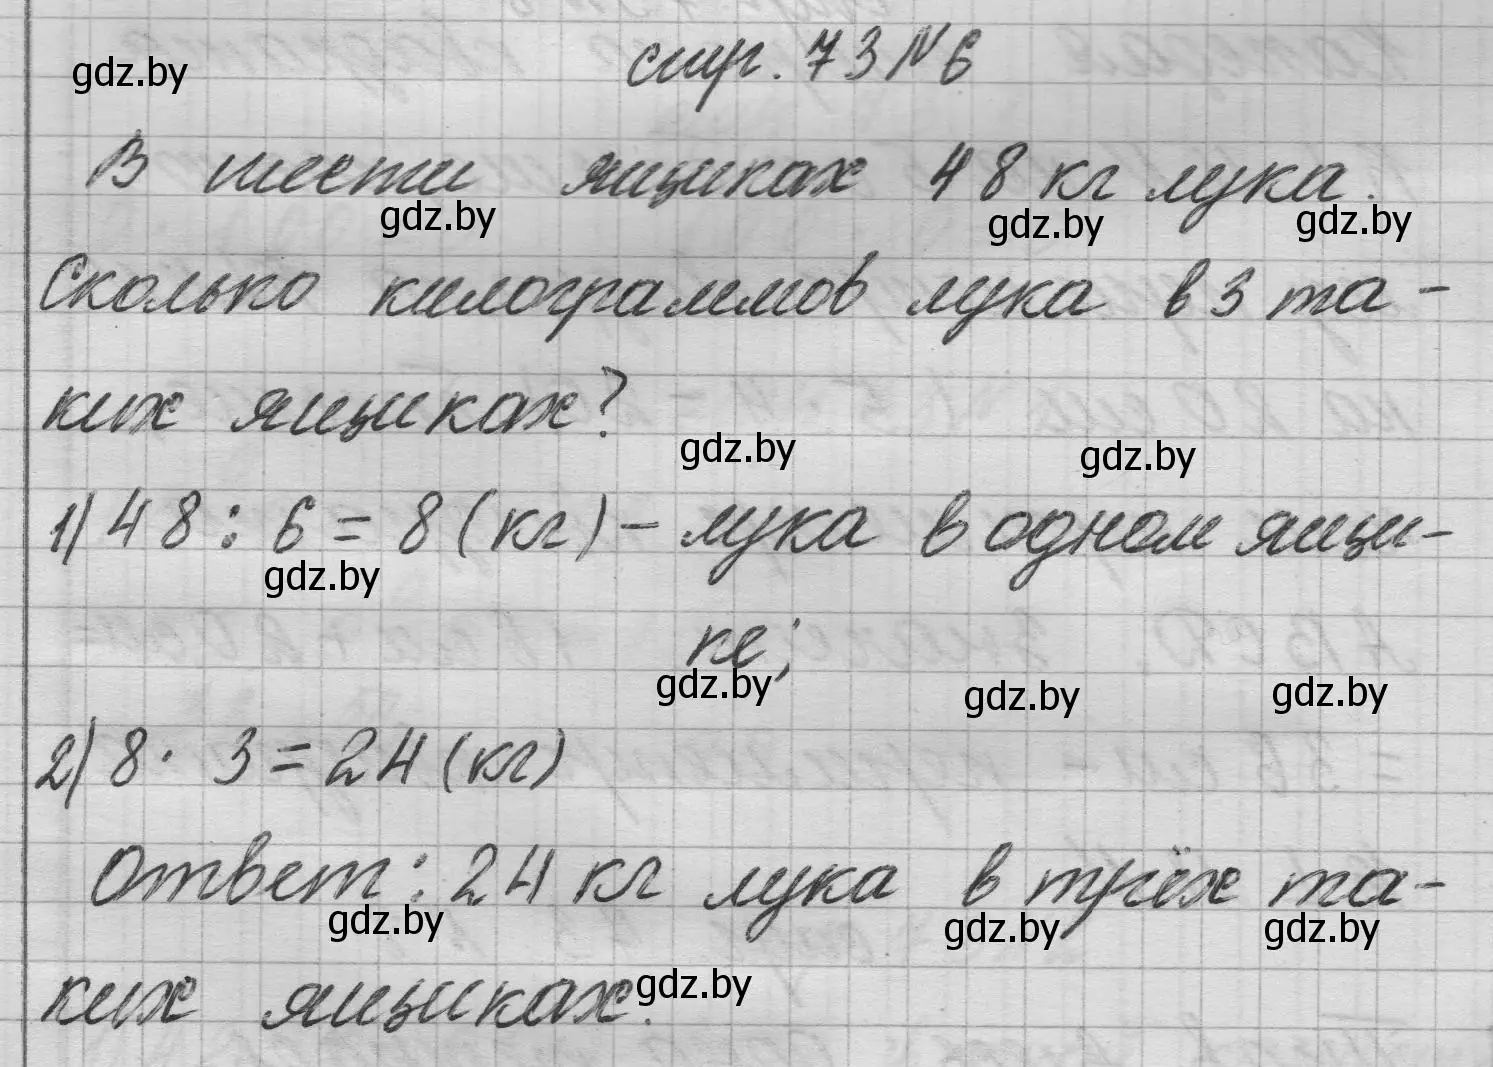 стр. 73 № 6
gdz.by
В шести ящиках 48 кг лука.
gdz.by gdz.by gdz.by
Сколько килограммов лука в 3 та-
ких ящиках?
gdz.by gdz.by
1) 48 : 6 = 8 (кг) – лука в одном ящи-
gdz.by
ке;
gdz.by gdz.by gdz.by
2) 8 · 3 = 24 (кг)
Ответ: 24 кг лука в трёх та-
gdz.by gdz.by gdz.by
ких ящиках.
gdz.by